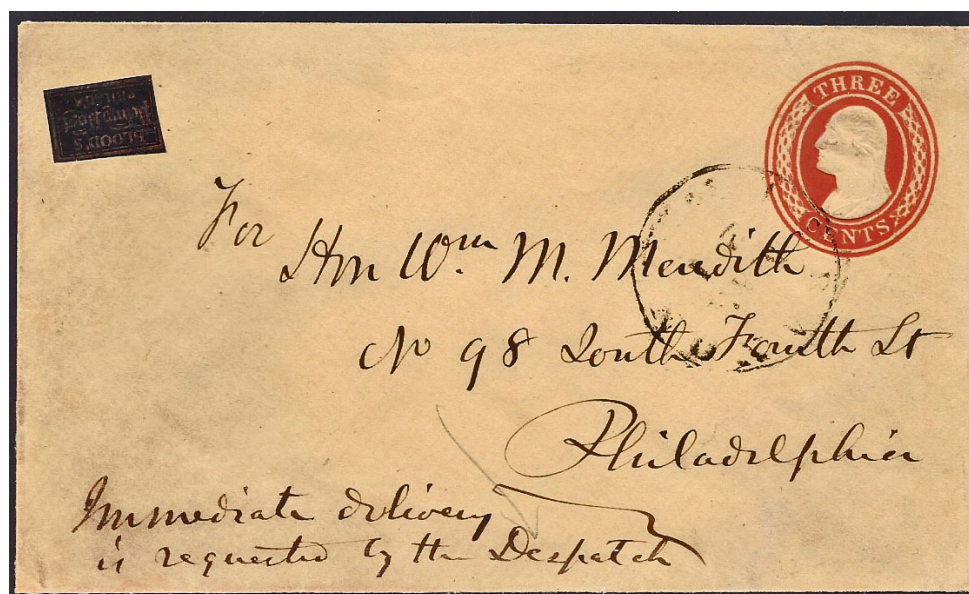 BLOOD'S
Penny Post
THREE
CENTS
For
Hon Wm M. Meredith
No 98 South Fourth St
Philadelphia
Immediate delivery
is requested by the Despatch